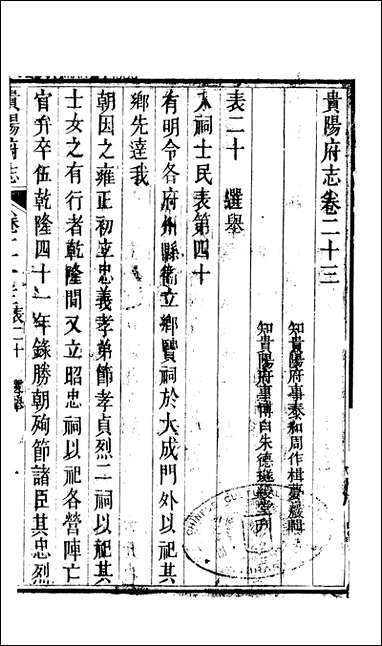 貴陽府志卷二十三
知貴陽府事泰和周作楫夢巖輯
知貴陽府事博白朱德璲綬堂刋
表二十　選舉
入祠士民表第四十
有明令各府州縣衞立鄉賢祠於大成門外以祀其
鄉先達我
朝因之雍正初立忠義孝弟節孝貞烈二祠以祀其
士女之有行者乾隆間又立昭忠祠以祀各營陣亡
官弁卒伍乾隆四十一年錄勝朝殉節諸臣其忠烈
貴陽府志
表二十
選舉